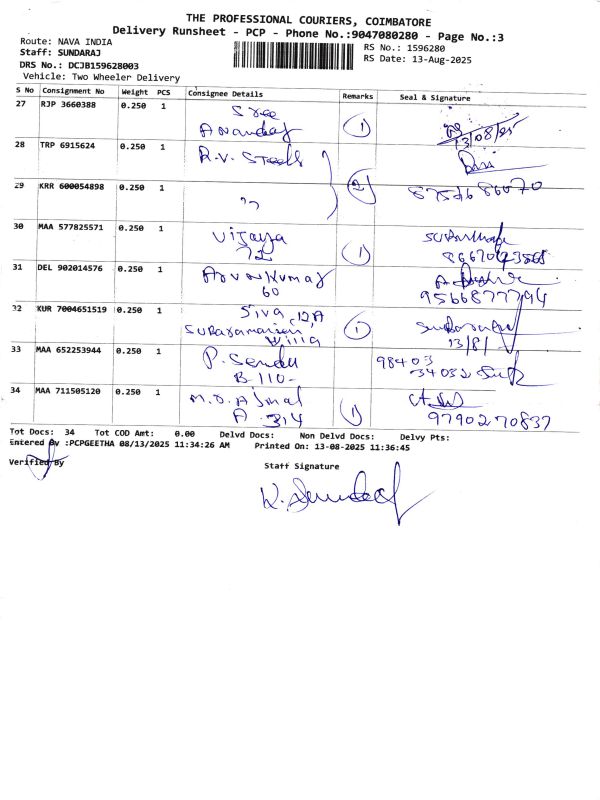 THE PROFESSIONAL COURIERS, COIMBATORE
Delivery Runsheet - PCP - Phone No.:9047080280 - Page No.:3
Route: NAVA INDIA
RS No.: 1596280
Staff: SUNDARAJ
RS Date: 13-Aug-2025
DRS No.: DCJB159628003
Vehicle: Two Wheeler Delivery
S No Consignment No Weight PCS Consignee Details Remarks Seal & Signature
27 RJP 3660388 0.250 1 Sree
Anandas 1 13/08/25
28 TRP 6915624 0.250 1 R.V. Steels
29 KRR 600054898 0.250 1 " 2 86070
30 MAA 577825571 0.250 1 Vijaya
72 1
31 DEL 902014576 0.250 1 Arunkumar
60 9566877794
32 KUR 7004651519 0.250 1 Siva 12A
Willa 1 13/8/
33 MAA 652253944 0.250 1 P. Sendu 98403
B 110- 34032
34 MAA 711505120 0.250 1 M.O. Ajmal
A 314 1 9790270837
Tot Docs: 34 Tot COD Amt: 0.00 Delvd Docs: Non Delvd Docs: Delvy Pts:
Entered By :PCPGEETHA 08/13/2025 11:34:26 AM Printed On: 13-08-2025 11:36:45
Verified By
Staff Signature